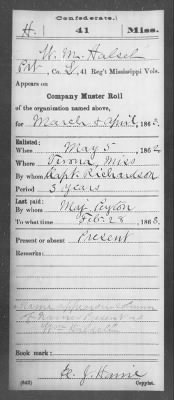 (Confederate.)
H. 41 Miss.
W. M. Halsel
Pvt, Co. L, 41 Reg't Mississippi Vols.
Appears on
Company Muster Roll
of the organization named above,
for March & April, 1863.
Enlisted:
When May 5, 1862
Where Verona, Miss
By whom Capt. Richardson
Period 3 years
Last paid:
By whom Maj. Peyton
To what time Feb. 28, 1863.
Present or absent Present
Remarks:
Name appears
as
Wm
Book mark:
(642) Copyist.